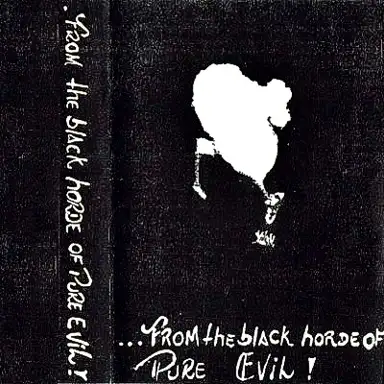 . FROM the black horde of Pure Evil!
...From the black horde of
Pure Evil !